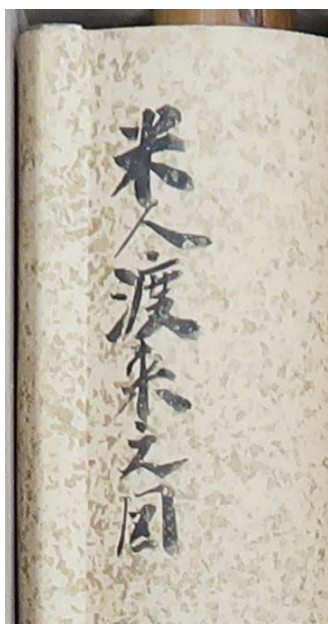 米人渡来之図